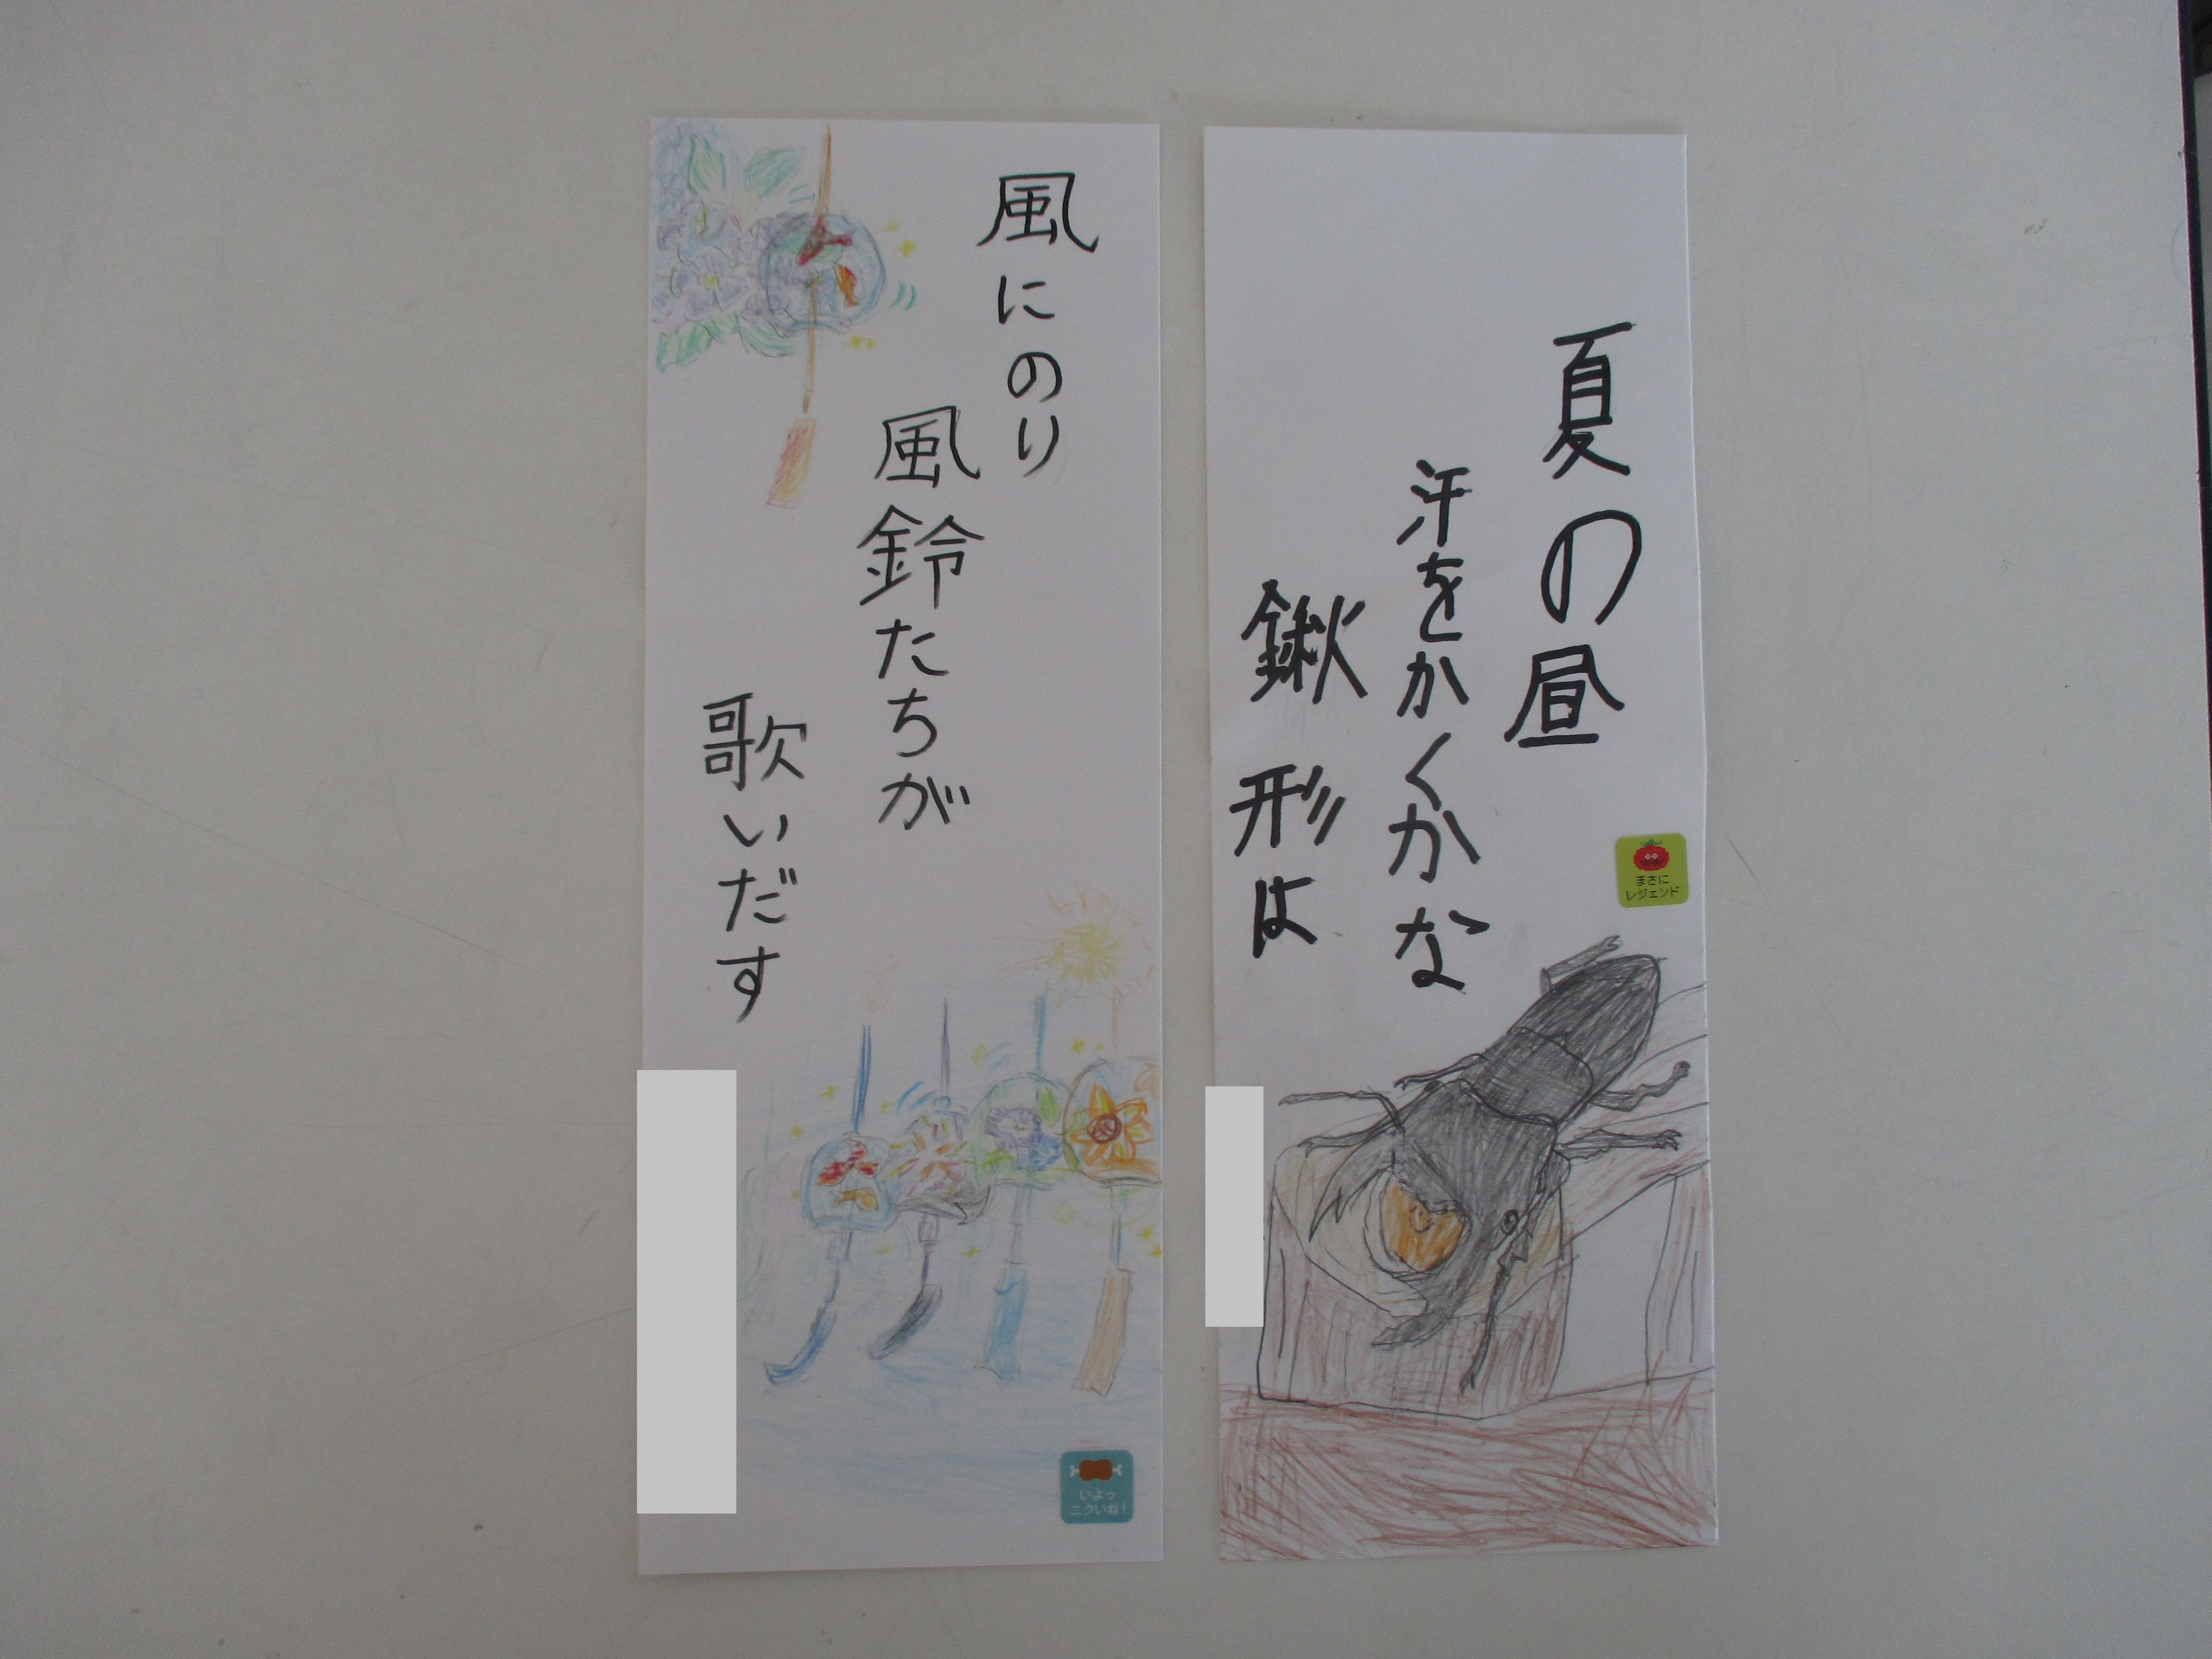 夏の昼
汗をかくかな
鍬形は
まさに
レジェンド
風にのり
風鈴たちが
歌いだす
いよっ
ニクいね!